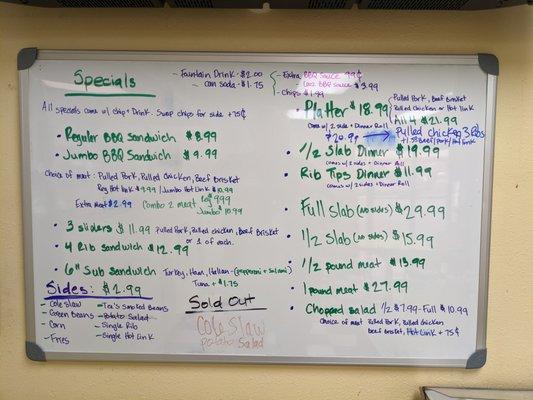 Specials
- Fountain Drink - $2.00
- can soda - $1.75
- Extra BBQ Sauce 99¢
- BBQ Sauce $3.99
- Chips $1.99
All specials come w/ chip + Drink. Swap chips for side +75¢
• Regular BBQ Sandwich $8.99
• Jumbo BBQ Sandwich $9.99
Choice of meat: Pulled Pork, Pulled Chicken, Beef Brisket
Reg Hot Link $9.99 / Jumbo Hot Link $10.99
Extra meat $2.99 Combo 2 meat Reg $9.99
Jumbo $10.99
• 3 sliders $11.99 Pulled Pork, Pulled chicken, Beef Brisket
or 1 of each.
• 4 Rib Sandwich $12.99
• 6" Sub Sandwich Turkey, Ham, Italian - (pepperoni + salami)
Tuna + $1.75
Sides: $2.99
- Cole Slaw
- Green Beans
- Corn
- Fries
- Tea's Smoked Beans
- Potato Salad
- Single Rib
- Single Hot Link
Sold Out
Cole Slaw
potato Salad
• Platter $18.99
Pulled Pork, Beef Brisket
Pulled Chicken or Hot Link
Comes w/ 2 side + Dinner Roll
All 4 $21.99
$20.99
Pulled chicken 3 Ribs
• 1/2 Slab Dinner $19.99
(comes w/ 2 sides + Dinner Roll)
• Rib Tips Dinner $11.99
(comes w/ 2 sides + Dinner Roll)
• Full Slab (no sides) $29.99
• 1/2 Slab (no sides) $15.99
• 1/2 pound meat $13.99
• 1 pound meat $27.99
• Chopped Salad 1/2 $7.99 - Full $10.99
Choice of meat Pulled Pork, Pulled Chicken
Beef Brisket, Hot Link + 75¢